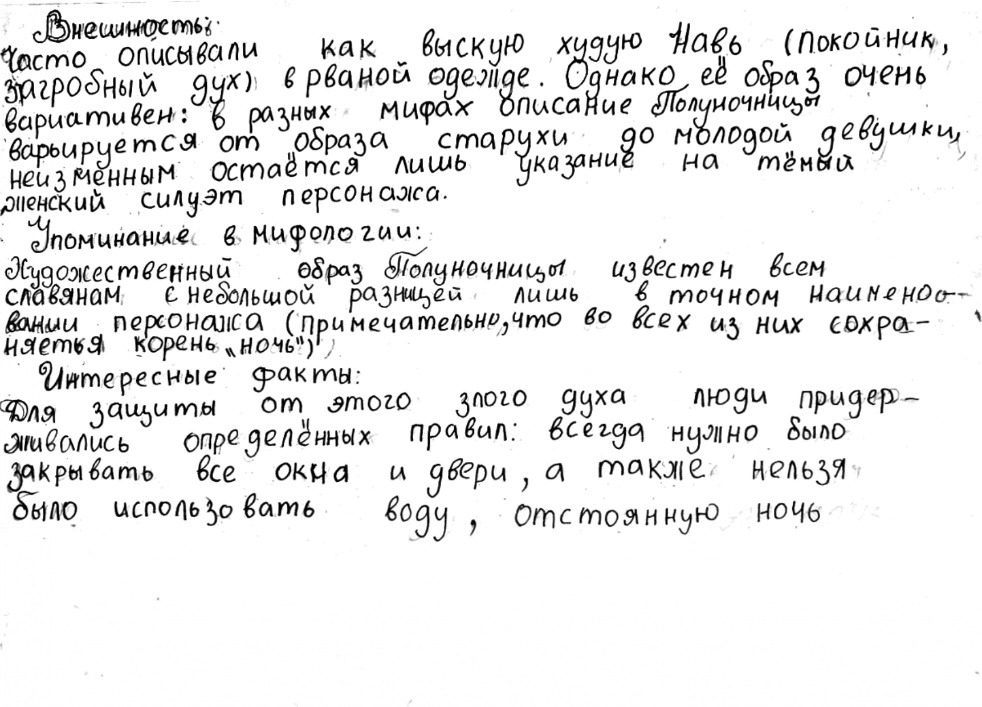 Внешность:
Часто описывали как выскую худую Навь (покойник,
загробный дух) в рваной одежде. Однако её образ очень
вариативен: в разных мифах описание Полуночницы
варьируется от образа старухи до молодой девушки,
неизменным остаётся лишь указание на тёмый
женский силуэт персонажа.
Упоминание в мифологии:
Художественный образ Полуночницы известен всем
славянам с небольшой разницей лишь в точном наимено-
вании персонажа (примечательно, что во всех из них сохра-
няется корень „ночь")
Интересные факты:
Для защиты от этого злого духа люди придер-
живались определённых правил: всегда нужно было
закрывать все окна и двери, а также нельзя
было использовать воду, отстоянную ночь